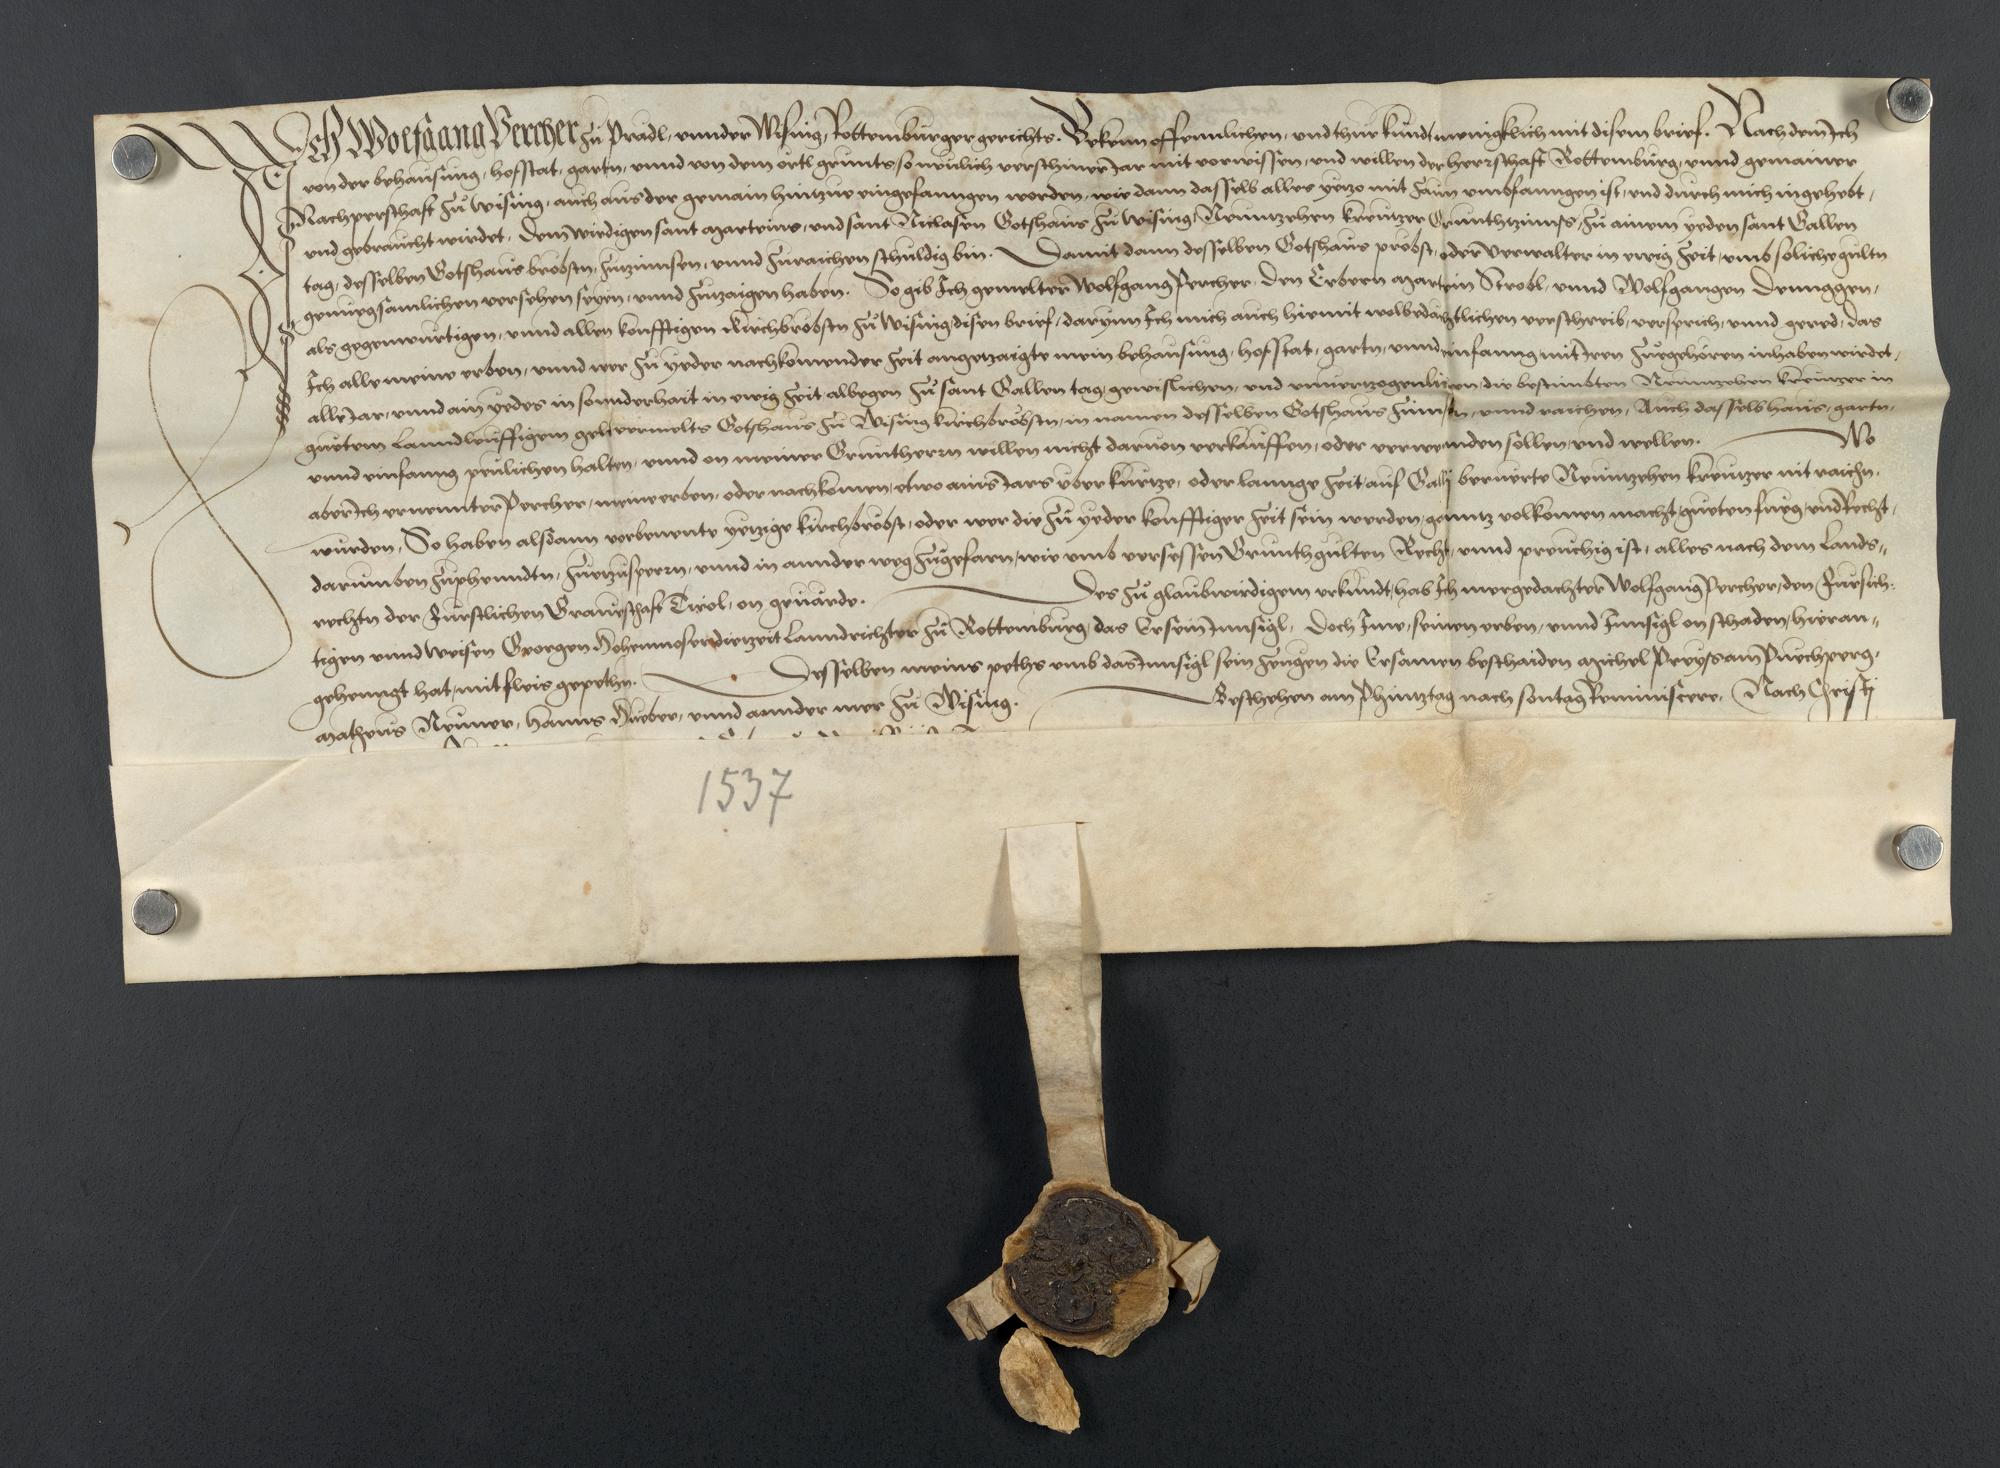 Ich Wolfgang Percher zu Prädl, vnnder Wising, Rottemburger gerichts. Bekenn offennlichen, vnd thue kundt menigklich mit disem brief. Nachdem Ich
von der behausung, hofstat, gartn, vnnd von dem örtl grunts, so neulich verschinen Jar mit vorwissen, vnd willen der herrschaft Rottemburg, vnnd gemainer
Nachperschaft zu Wising, auch aus der gemain hintzue eingefanngen worden, wie dann dasselb alles yetzo mit zaun vmbfanngen ist, vnd durch mich ingehebt,
vnd gebraucht wirdet, dem wirdigen sant Marteins, vnd sant Niclasen Gotshaus zu Wising, Neuntzehen kreutzer Grunthtzinns, zu ainem yeden sant Gallen
tag, desselben Gotshaus bröbstn, zutzinnsen, vnnd zuraichen schuldig bin. Damit dann desselben Gotshaus pröbst, oder verwalter in ewig zeit, vmb soliche gülten
genuegsamlichen versehen seyen, vnnd zutzaigen haben. So gib Ich gemelter Wolfgang Percher, den Erbern Martein Strobl, vnnd Wolfgangen Denggen,
als gegenwürtigen, vnnd allen konfftigen kirchbröbstn zu Wising, disen brief, darynn Ich mich auch hiemit wolbedächtlichen verschreib, versprich, vnnd gered, das
Ich alle meine erben, vnnd wer zu yeder nachkomender zeit angetzaigte mein behausung, hofstat, gartn, vnnd einfanng, mit Iren zuegehören inhaben wirdet,
alle Jar, vnnd ain yedes in sonnderhait in ewig zeit, albegen zu sant Gallen tag, gewislichen, vnd vnuertzogenlichen die bestimbten Neuntzehen kreutzer in
guetem Lanndleuffigem gelt, vermelts Gotshaus zu Wising kirchbröbstn, in namen desselben Gotshaus zinnsen, vnnd raichen, Auch dasselb haus, gartn,
vnnd einfanng peulichen halten, vnnd on meiner Grunthern willen nicht daruon verkauffen, oder verwennden sollen, vnd wellen. Wo
aber Ich ernennter Percher, meine erben, oder nachkomen, etwo ains Jars vber kurtze, oder lannge zeit, auf Galli beruerte Neuntzehen kreutzer nit raichn
wurden, So haben alsdann verbenente yetzige kirchbröbst, oder wer die zu yeder konfftiger zeit sein werden, ganntz volkomen macht, gueten fueg, vnd Recht,
darumben zuphenndtn, zuetzusperrn, vnnd in annder weg zugefarn, wie vmb versessen Grunthgulten Recht, vnnd preuchig ist, alles nach dem Lands„
rechtn der Fürstlichen Graueschaft Tirol, on geuärde. Des zu glaubwirdigem vrkundt, hab Ich mergedachter Wolfgang Percher, den Fürsich-
tigen vnnd Weisen Georgen Hohenmoser diezeit Lanndrichter zu Rottemburg, das Er sein Innsigl, Doch Ime, seinen erben, vnnd Innsigl on schaden, hieran„
gehenngt hat, mit fleis gepethn. Desselben meins peths vmb das Innsigl sein zeugen die Ersamen beschaiden Michel Preyss am Puechperg,
Matheus Neuner, hanns Hueber, vnnd annder mer zu Wising. Beschehen am Phintztag nach sontag Reminiscere, Nach Christi
1537